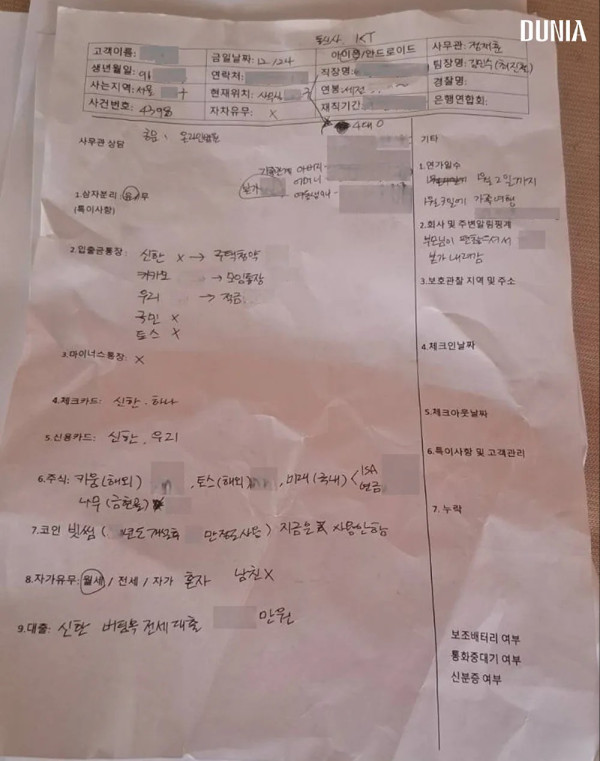 DUNIA
통신사 KT
고객이름:
금일날짜: 12/24
아이폰/안드로이드
사무관:
생년월일: 91
연락처:
직장명:
팀장명:
사는지역: 서울
현재위치:
연봉: 세전
경찰명:
사건번호: 4398
자차유무: X
재직기간:
은행연합회:
4대 O
사무관 상담
기타
가족관계 아버지
본가 어머니
1.삼자분리: 유/무
(특이사항)
1.연가일수
1월 2일까지
1월 3일에 가족여행
2.회사 및 주변알림핑계
부모님이
본가 내려감
2.입출금통장: 신한 X → 주택청약
카카오 → 모임통장
우리 → 적금
국민 X
토스 X
3.보호관찰 지역 및 주소
3.마이너스통장: X
4.체크인날짜
4.체크카드: 신한, 하나
5.체크아웃날짜
5.신용카드: 신한, 우리
6.특이사항 및 고객관리
6.주식: 키움(해외) , 토스(해외) , 미래(국내) < ISA
연금
나무(금현물)
7. 누락
7.코인 빗썸 ( 만정도 사용) 지금은 사용안함
8.자가유무: 월세 / 전세 / 자가 혼자 남친X
9.대출: 신한 버팀목 전세대출 만원
보조배터리 여부
통화중대기 여부
신분증 여부